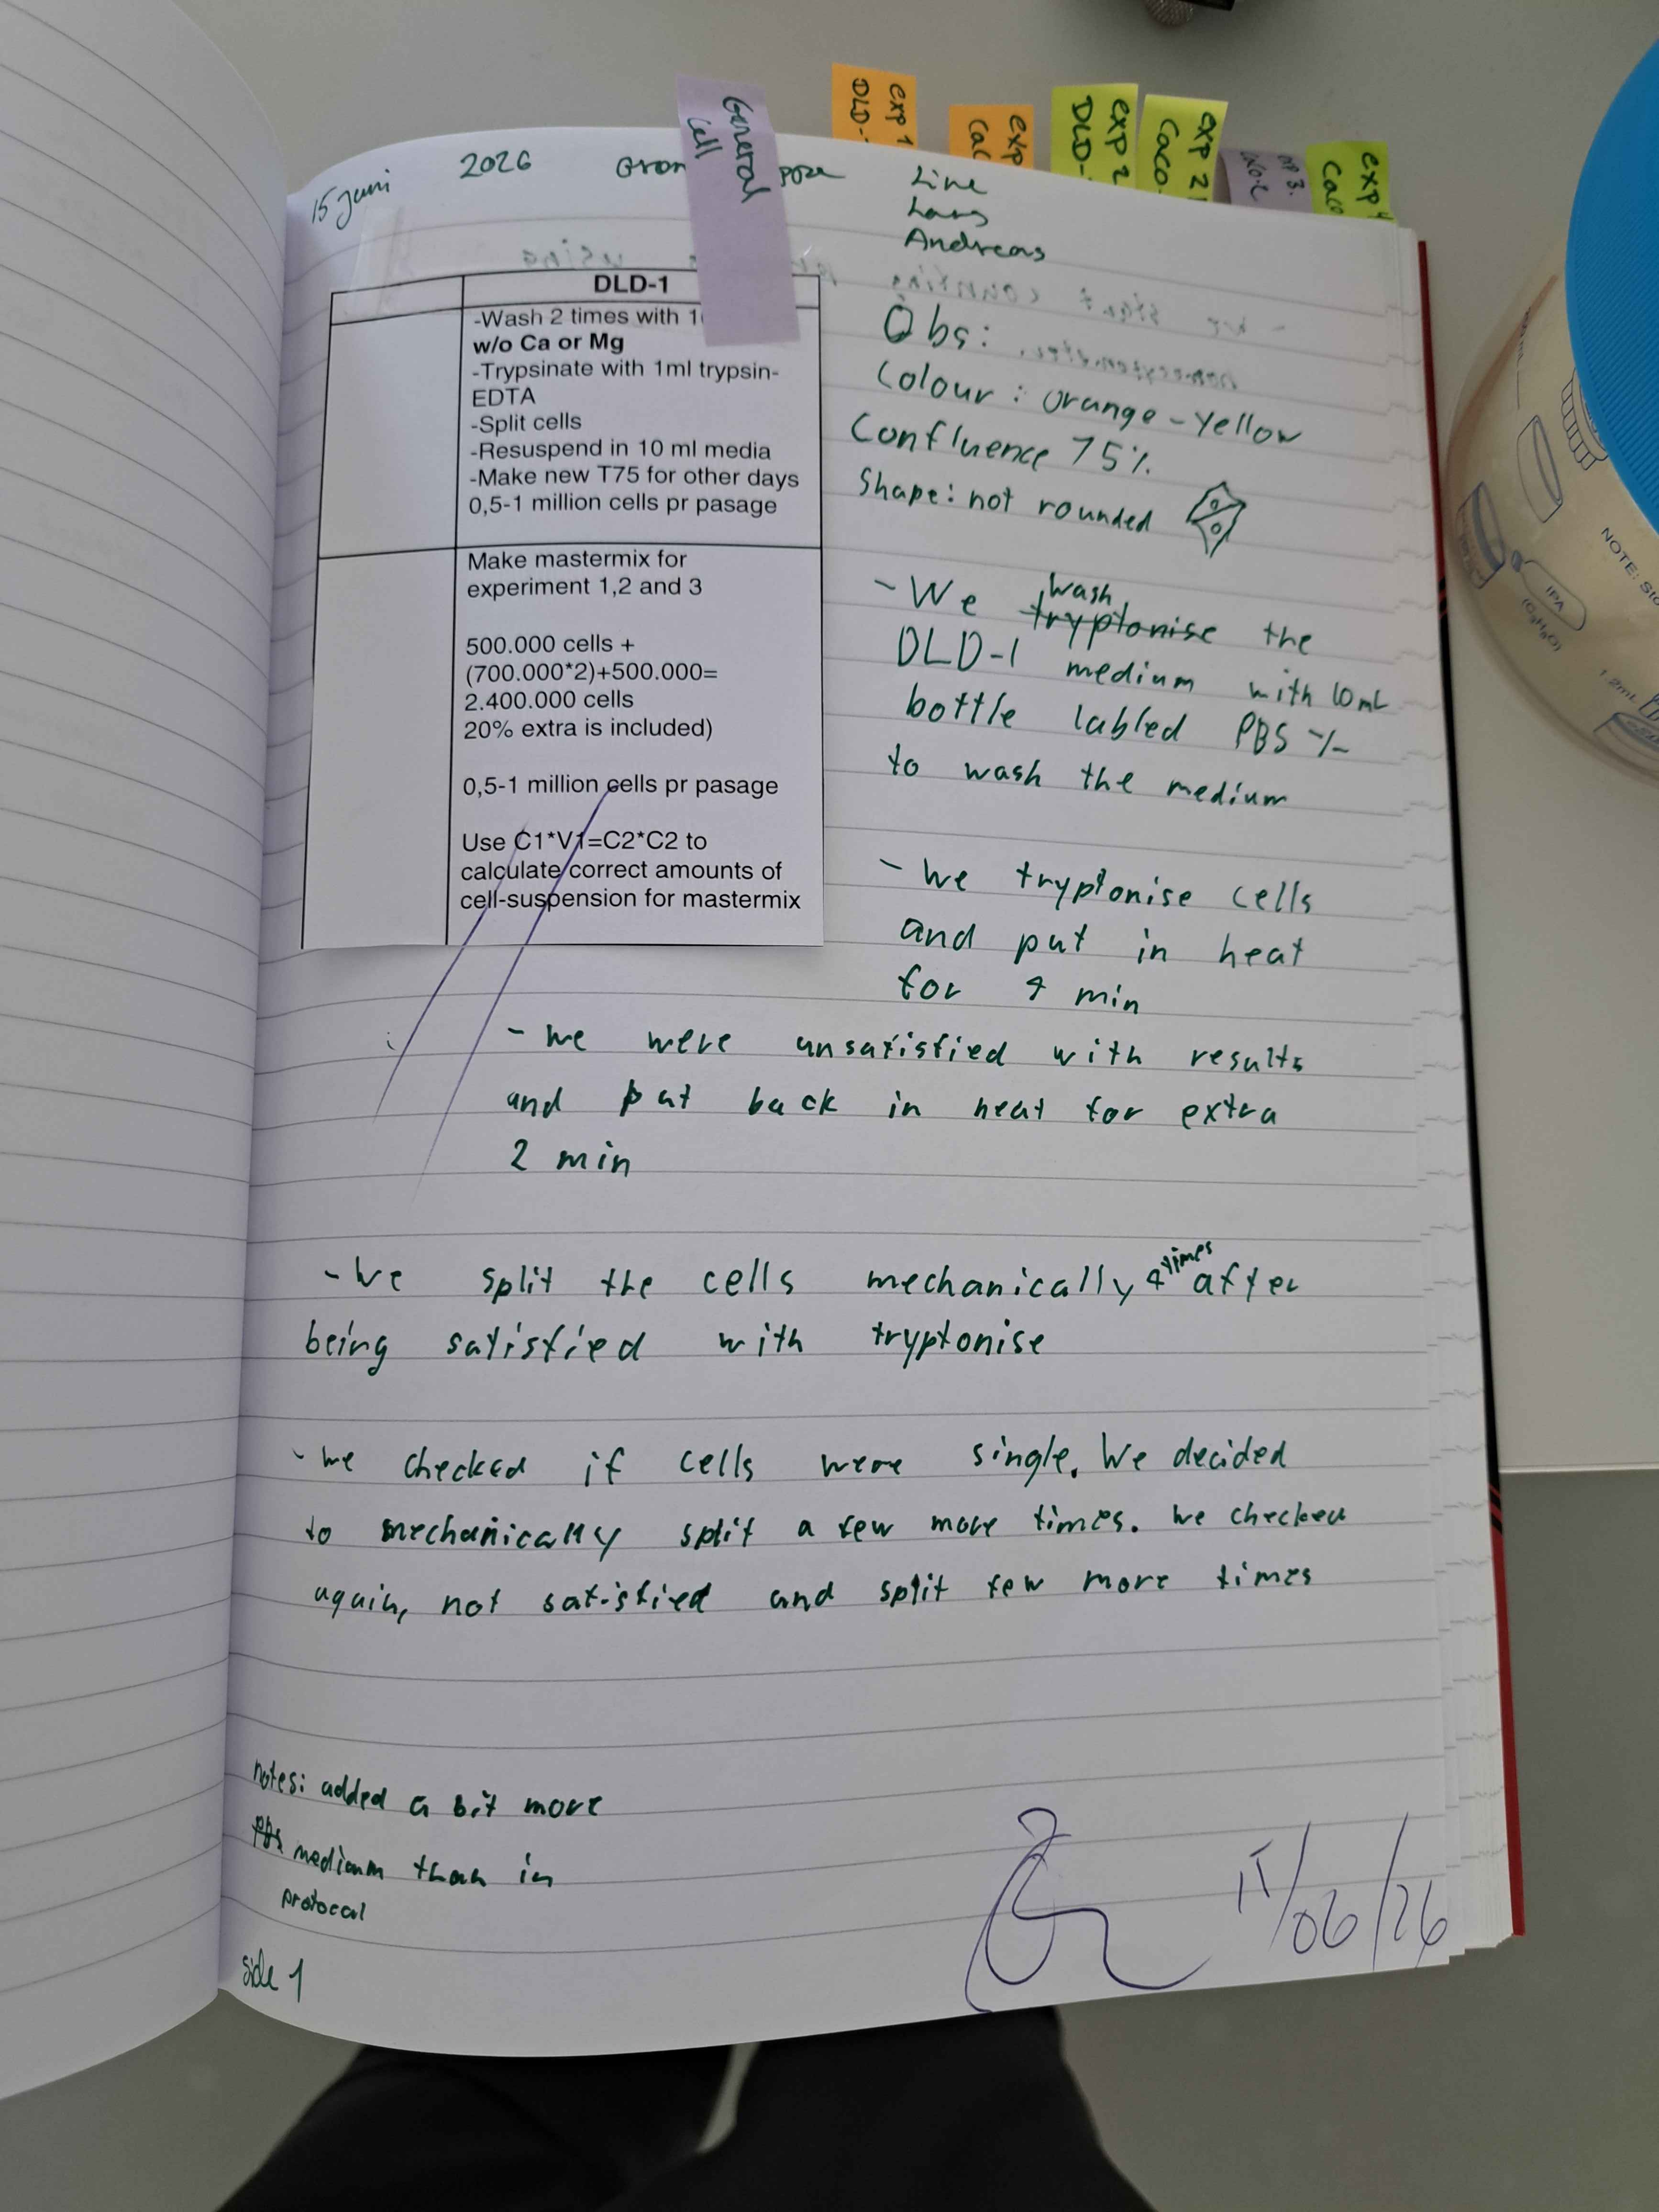 General
cell
exp 1
DLD-
exp
Cac
exp 2
DLD-
exp 2
Caco-
exp 4
Caco
15 juni 2026
Line
Lars
Andreas
DLD-1
-Wash 2 times with 1
w/o Ca or Mg
-Trypsinate with 1ml trypsin-
EDTA
-Split cells
-Resuspend in 10 ml media
-Make new T75 for other days
0,5-1 million cells pr pasage
Make mastermix for
experiment 1,2 and 3
500.000 cells +
(700.000*2)+500.000=
2.400.000 cells
20% extra is included)
0,5-1 million cells pr pasage
Use C1*V1=C2*C2 to
calculate correct amounts of
cell-suspension for mastermix
Obs:
Colour: orange-yellow
Confluence 75%
Shape: not rounded
- We wash tryptonise the
DLD-1 medium with 10mL
bottle labled PBS -/-
to wash the medium
- We tryptonise cells
and put in heat
for 4 min
- We were unsatisfied with results
and put back in heat for extra
2 min
- We split the cells mechanically 4 times after
being satisfied with tryptonise
- We checked if cells were single. We decided
to mechanically split a few more times. We checked
again, not satisfied and split few more times
notes: added a bit more
PBS medium than in
protocal
side 1
15/06/26
NOTE: Sto
IPA
(C3H8O)